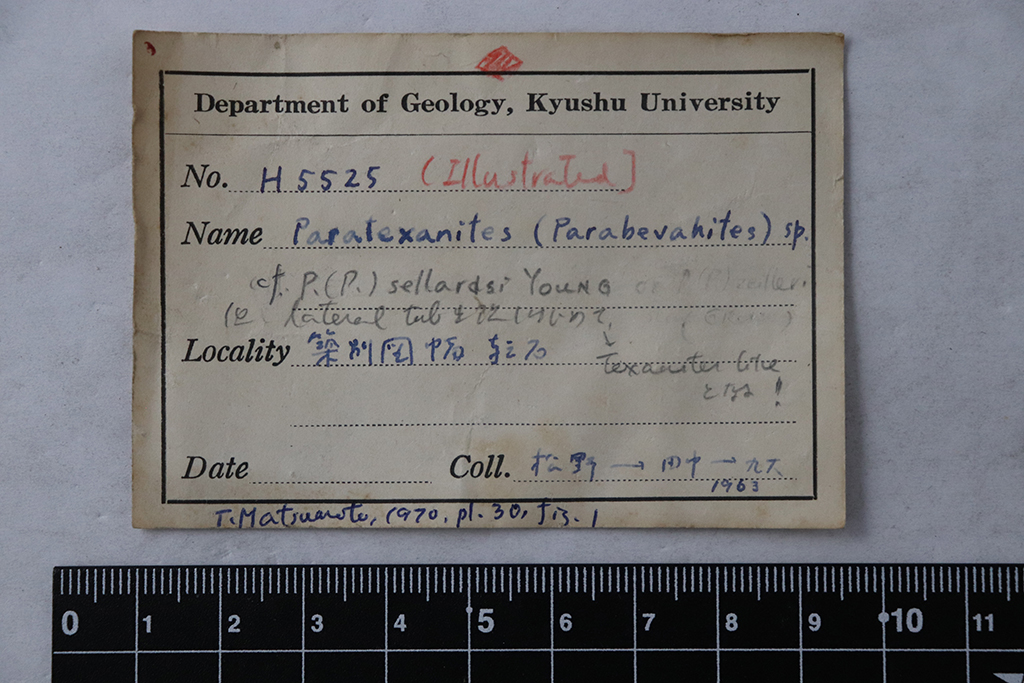 Department of Geology, Kyushu University
No. H5525 (Illustrated]
Name Paratexanites (Parabevahites) sp.
cf. P.(P.) sellardsi YOUNG or P.(P.)
lateral tub
Locality 築別図幅
texanites like
となる!
Date Coll. 松野 → 田中 → 九大
1963
T. Matsumoto, 1970, pl. 30, fig. 1
0 1 2 3 4 5 6 7 8 9 10 11